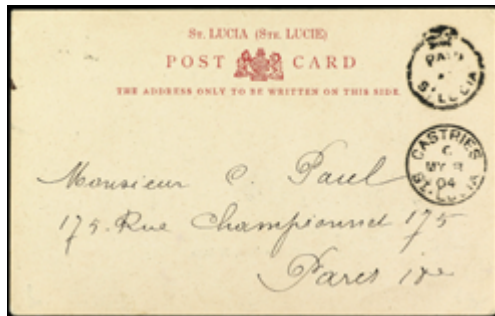 St. LUCIA (Ste. LUCIE)
POST CARD
THE ADDRESS ONLY TO BE WRITTEN ON THIS SIDE.
PAID
ST LUCIA
CASTRIES
C
MY
04
ST. LUCIA
Monsieur C. Paul
175. Rue Championnet 175
Paris